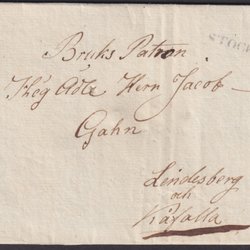 Bruks Patron
STOCK
Hög Ädle Herr Jacob
Gahn
Lindesberg
och
Kåfalla